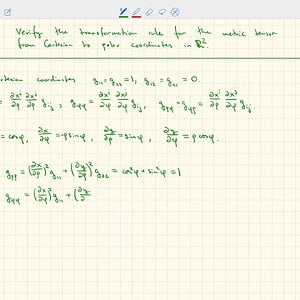 Verify the transformation rule for the metric tensor
from Cartesian to polar coordinates in ℝ².
rtesian coordinates g₁₁ = g₂₂ = 1, g₁₂ = g₂₁ = 0.
= ∂xⁱ/∂ρ ∂xʲ/∂ρ gᵢⱼ, g_φφ = ∂xⁱ/∂φ ∂xʲ/∂φ gᵢⱼ, g_ρφ = g_φρ = ∂xⁱ/∂ρ ∂xʲ/∂φ gᵢⱼ.
= cosφ, ∂x/∂φ = -ρ sinφ, ∂y/∂ρ = sinφ, ∂y/∂φ = ρ cosφ.
g_ρρ = (∂x/∂ρ)² g₁₁ + (∂y/∂ρ)² g₂₂ = cos²φ + sin²φ = 1
g_φφ = (∂x/∂φ)² g₁₁ + (∂y/∂